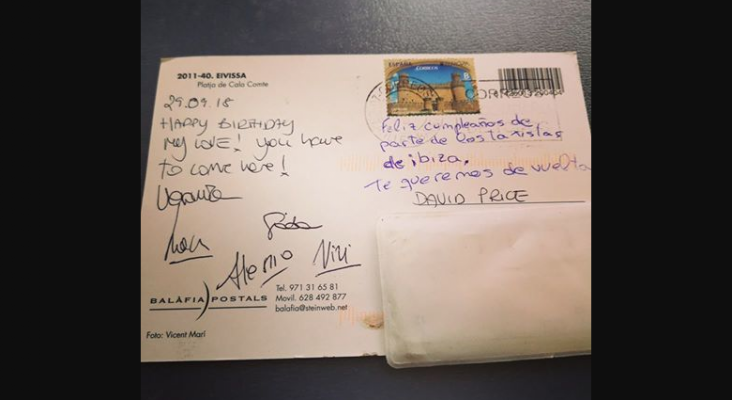 2011-40. EIVISSA
Platja de Cala Comte
29.09.18
HAPPY BIRTHDAY
MY LOVE! you have
to come here!
ESPAÑA
CORREOS
CORREOS
Feliz cumpleaños de
parte de los taxistas
de ibiza,
Te queremos de vuelta
DAVID PRICE
Viri
BALÀFIA POSTALS
Tel. 971 31 65 81
Movil. 628 492 877
balafia@steinweb.net
Foto: Vicent Marí